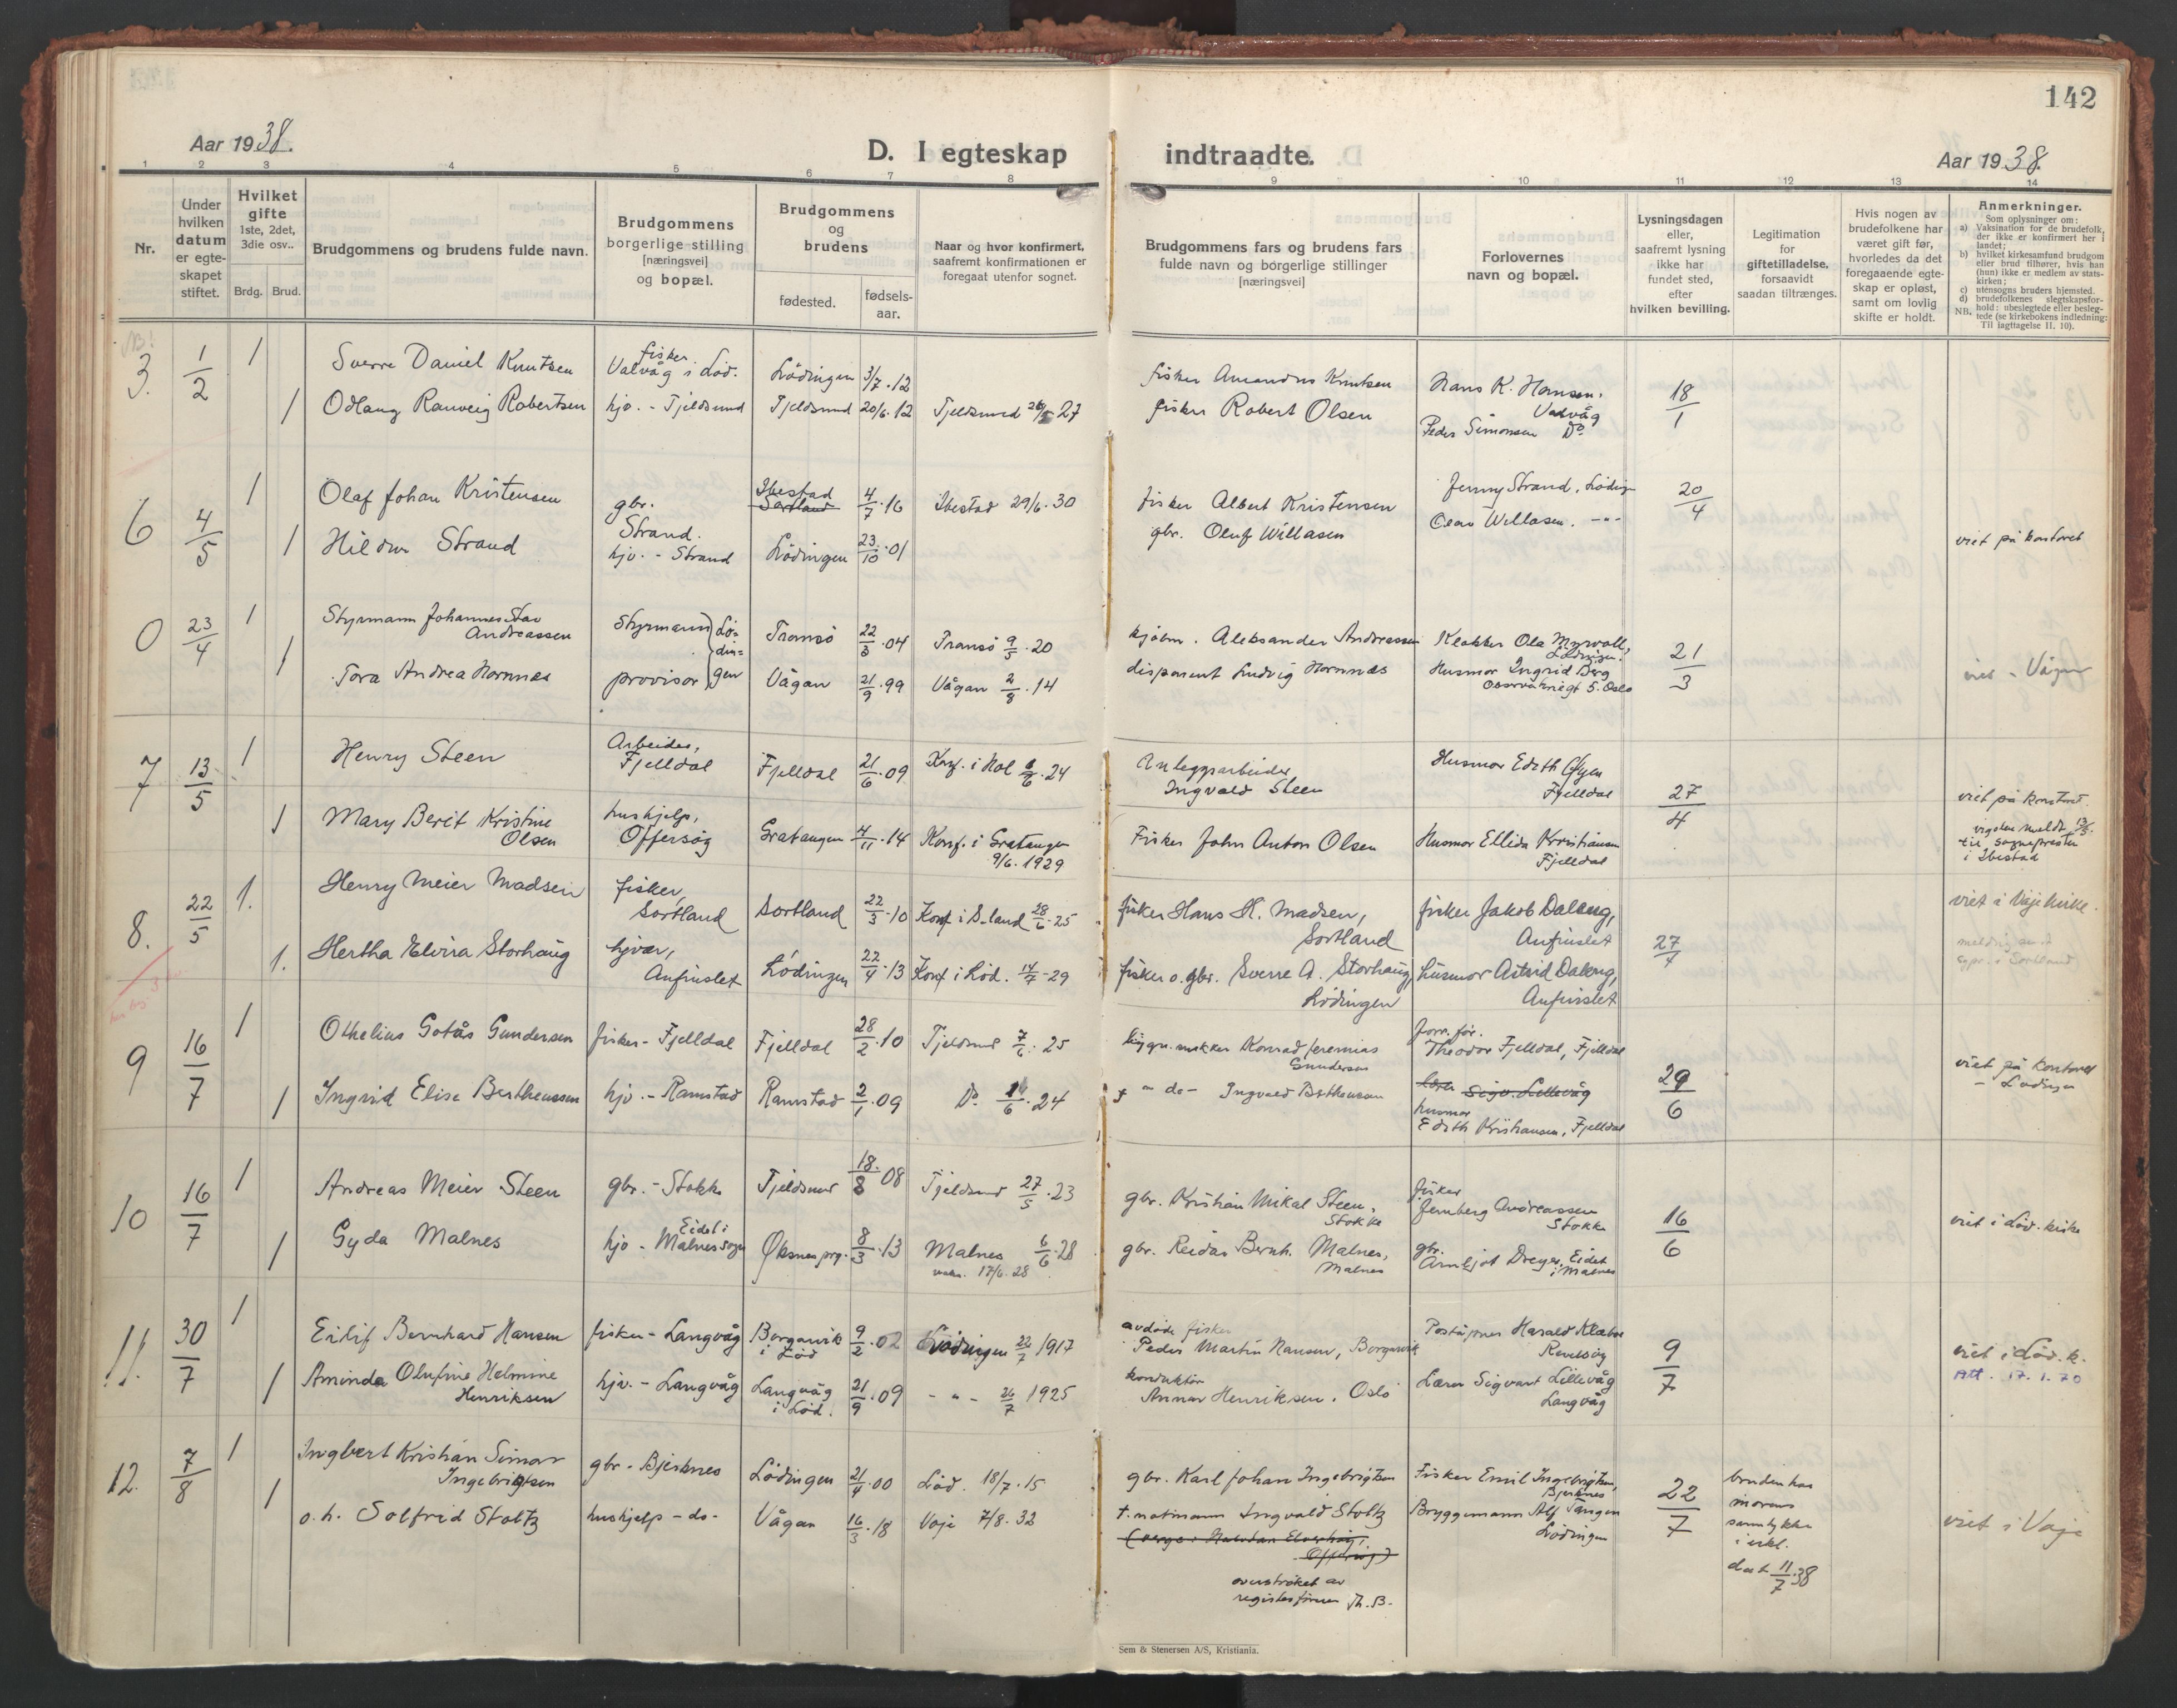 142
Aar 1938.
D. I egteskap indtraadte.
Aar 1938.
1 2 3 4 5 6 7 8 9 10 11 12 13 14
Nr.
Under hvilken datum er egte-skapet stiftet.
Hvilket gifte 1ste, 2det, 3die osv..
Brdg. Brud.
Brudgommens og brudens fulde navn.
Brudgommens borgerlige stilling [næringsvei] og bopæl.
Brudgommens og brudens
fødested.
fødsels-aar.
Naar og hvor konfirmert, saafremt konfirmationen er foregaat utenfor sognet.
Brudgommens fars og brudens fars fulde navn og borgerlige stillinger [næringsvei]
Forlovernes navn og bopæl.
Lysningsdagen eller, saafremt lysning ikke har fundet sted, efter hvilken bevilling.
Legitimation for giftetilladelse, forsaavidt saadan tiltrænges.
Hvis nogen av brudefolkene har været gift før, hvorledes da det foregaaende egte-skap er opløst, samt om lovlig skifte er holdt.
Anmerkninger.
Som oplysninger om:
a) Vaksination for de brudefolk, der ikke er konfirmert her i landet;
b) hvilket kirkesamfund brudgom eller brud tilhører, hvis han (hun) ikke er medlem av stats-kirken;
c) utensogns bruders hjemsted.
d) brudefolkenes slegtskapsfor-hold: ubeslegtede eller besleg-tede (se kirkebokens indledning: Til iagttagelse II. 10).
NB.
NB!
3. 1/2 1 Sverre Daniel Knutsen fisker Valvåg i Lød. Lødingen 3/7.12 fisker Amandus Knutsen Hans K. Hansen, Valvåg 18/1
1 Odlaug Ranveig Robertsen hjv. - Tjeldsund Tjeldsund 20/6.12 Tjeldsund 27 fisker Robert Olsen Peder Simonsen Do
6 4/5 1 Olaf Johan Kristensen gbr. Strand. Ibestad Sortland 4/7.16 Ibestad 29/6.30 fisker Albert Kristensen Jenny Strand, Lødingen 20/4
1 Hildur Strand hjv. - Strand Lødingen 23/10.01 gbr. Oluf Willasen Willasen. -"- viet på kontoret
0 23/4 1 Styrmann Johannes Andreassen Styrmann Lødingen Tromsö 22/3.04 Tromsö 9/5.20 kjøbm. Aleksander Andreassen Klokker Ola Myrvoll, Lødingen. 21/3
1 Tora Andrea Hornnes provisor Vågan 21/9.99 Vågan 2/8.14 disponent Ludvig Hornnes Husmor Ingrid Berg 5. Oslo viet - Vågan
7 13/5 1 Henry Steen Arbeider, Fjelldal Fjelldal 21/6.09 Konf. i Hol 24 Anleggsarbeider Ingvald Steen Husmor Edith Fjelldal 27/4 viet på kontoret.
1 Mary Berit Kristine Olsen hushjelp, Offersøy Gratangen 4/11.14 Konf. i Gratangen 9/6.1929 Fisker John Anton Olsen Husmor Ellida Kristiansen Fjelldal vigslen meldt 13/5. til sognepresten i Ibestad
8. 22/5 1. Henry Meier Madsen fisker, Sortland Sortland 22/3.10 Konf i S.land 28/6.25 fisker Hans H. Madsen, Sortland fisker Jakob Daleng, Aufinslet 27/4 viet i Vaje kirke.
1. Hertha Elvira Storhaug hjvær, Aufinslet Lødingen 22/4.13 Konf i Lød. 14/7-29 fisker o. gbr. Sverre A. Storhaug, Lødingen husmor Astrid Daleng, Aufinslet
9 16/7 1 Othelius Gotås Gundersen fisker - Fjelldal Fjelldal 28/2.10 Tjeldsund 7/6.25 Konrad Jeremias Gundersen Theodor Fjelldal, Fjelldal 29/6 viet på kontoret - Lødingen
1 Ingrid Elise Bertheussen hjv. - Ramstad Ramstad 2/1.09 Do 14/6.24 - do - Ingvald Bertheussen lærer Sigv. Lillevåg husmor Edith Kristiansen, Fjelldal
10 16/7 1 Andreas Meier Steen gbr. - Stokke Tjeldsund 18/8.08 Tjeldsund 27/5.23 gbr. Kristian Mikal Steen, Stokke fisker Jernberg Andreassen Stokke 16/6 viet i Lød. kirke
1 Gyda Malnes hjv - Eidet i Malnes sogn Øksnes prg. 8/3.13 Malnes 6/6.28 vaks. 17/6.28 gbr. Reidar Bernh. Malnes, Malnes gbr. Arnljot Dreyer, Eidet i Malnes
11. 30/7 1 Eilif Bernhard Hansen fisker - Langvåg Borgarvik i Lød 9/2.02 Lødingen 22/7 1917 avdøde fisker Peder Martin Hansen, Borgarvik Poståpner Harald Klæboe 9/7 viet i Lød. k.
1 Aminda Olufine Helmine Henriksen hjv. - Langvåg Langvåg i Lød. 21/9.09 - " - 26/7 1925 konduktør Annar Henriksen, Oslo Lærer Sigvart Lillevåg Langvåg Att. 17.1.70
12. 7/8 1 Ingbert Kristian Simon Ingebrigtsen gbr - Bjerknes Lødingen 21/4.00 Lød. 18/7.15 gbr. Karl Johan Ingebrigtsen Fisker Emil Ingebrigtsen, Bjerknes 22/7 bruden har morens samtykke i erkl. dat 11/7.38
1 o.h. Solfrid Stoltz hushjelp - do - Vågan 16/3.18 Vaje 7/8.32 †. Ingvald Stoltz Bryggemann Alf Tangen Lødingen viet i Vaje
overstrøket av registerfører Th. B.
Sem & Stenersen A/S, Kristiania.